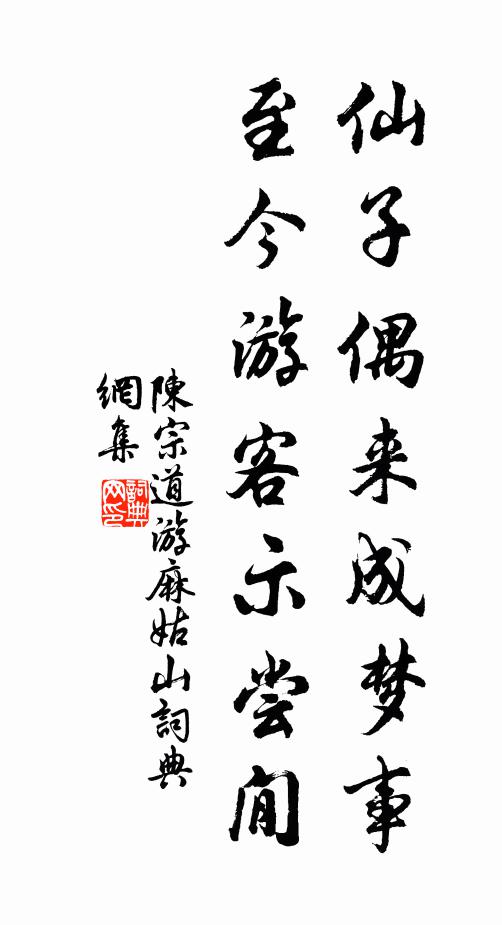 仙子偶来成梦事
至今游客示尝闲
陳宗道游麻姑山詞典
網集
詞典
网印